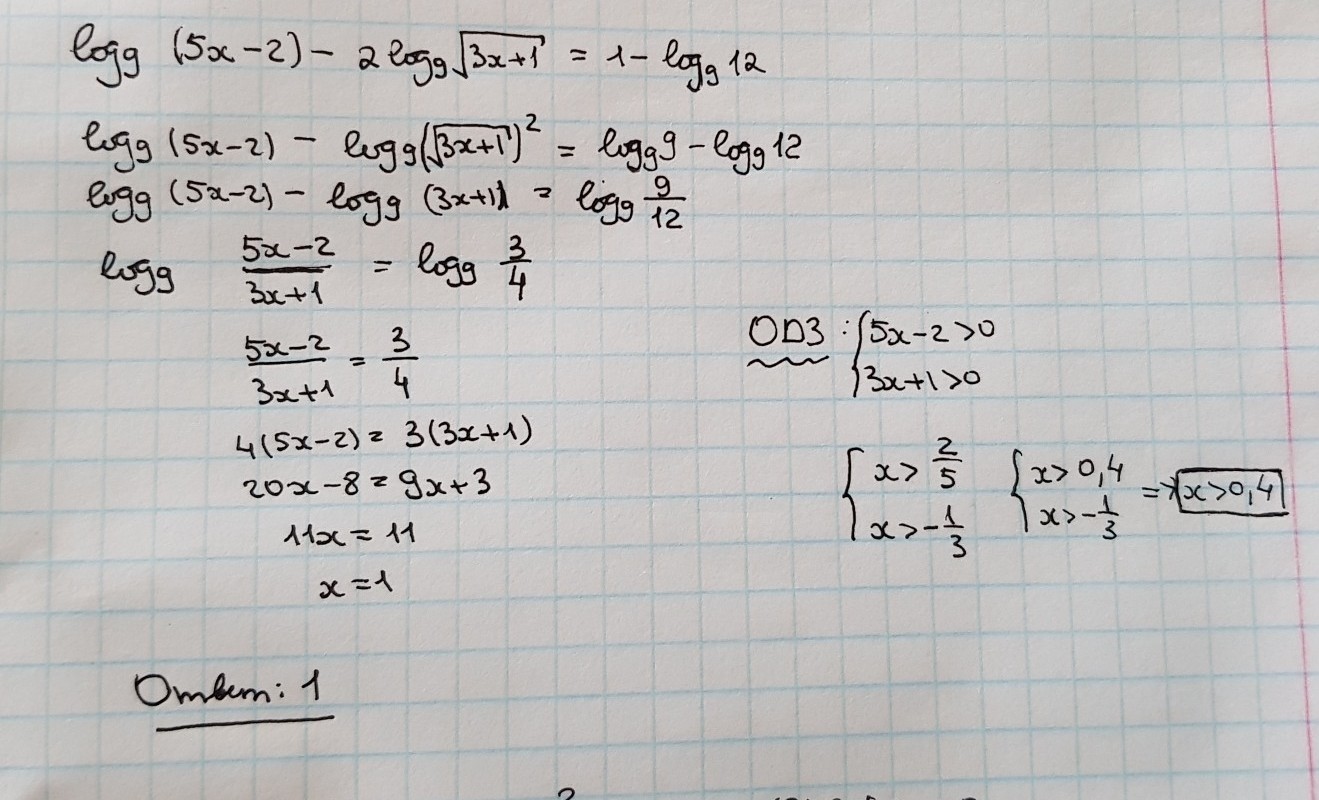 log₉ (5x-2) - 2 log₉ √(3x+1) = 1 - log₉ 12
log₉ (5x-2) - log₉ (√(3x+1))² = log₉ 9 - log₉ 12
log₉ (5x-2) - log₉ (3x+1) = log₉ 9/12
log₉ (5x-2)/(3x+1) = log₉ 3/4
(5x-2)/(3x+1) = 3/4
4(5x-2) = 3(3x+1)
20x-8 = 9x+3
11x = 11
x = 1
ОДЗ: { 5x-2>0
3x+1>0
{ x > 2/5 { x > 0,4 => x>0,4
x > -1/3 x > -1/3
Ответ: 1